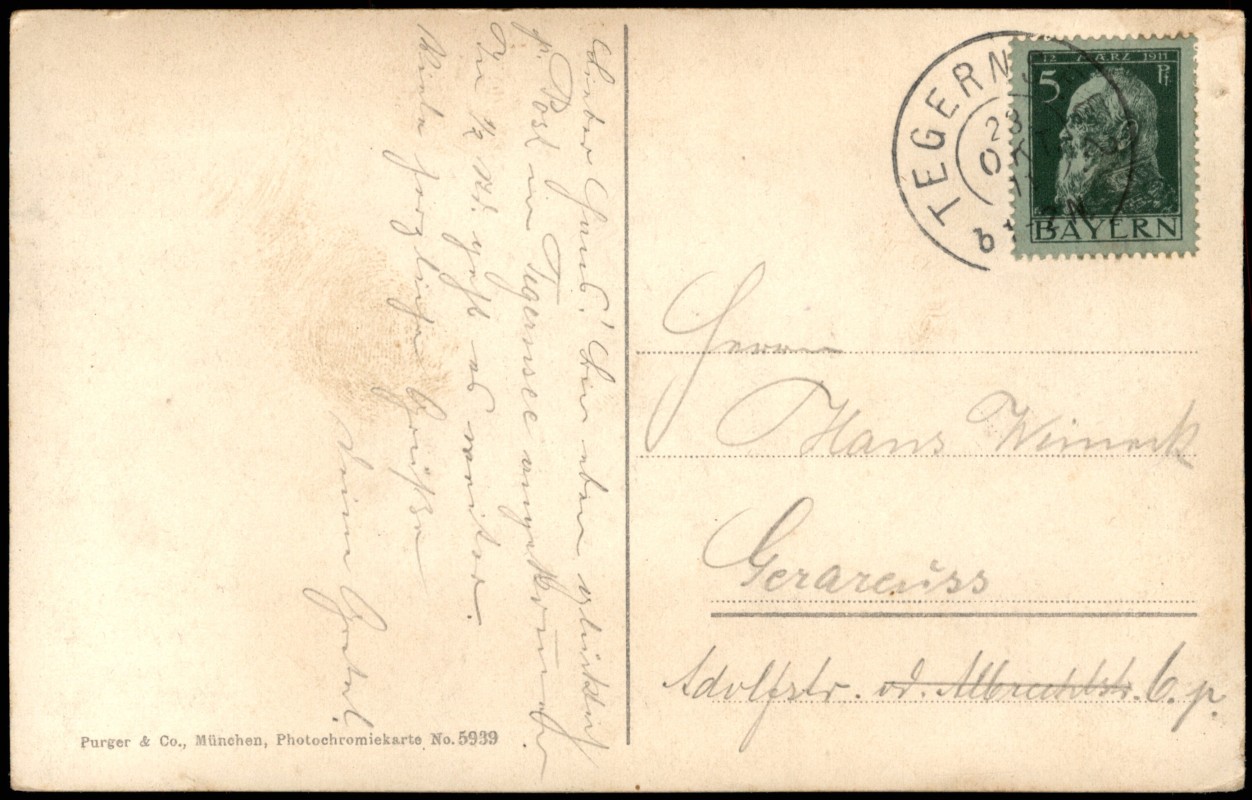 Lieber Hans! Bin eben glücklich
p. Post in Tegernsee angekommen
In ½ Std. geht es weiter.
Viele herzliche Grüße
Deine Gretel.
Purger & Co., München, Photochromiekarte No. 5939
TEGERNSEE
23
OKT
12. MÄRZ 1911
5 Pf
BAYERN
Herrn
Hans
Gerareuss
Adolfstr. od. Albrechtstr. 6. p.